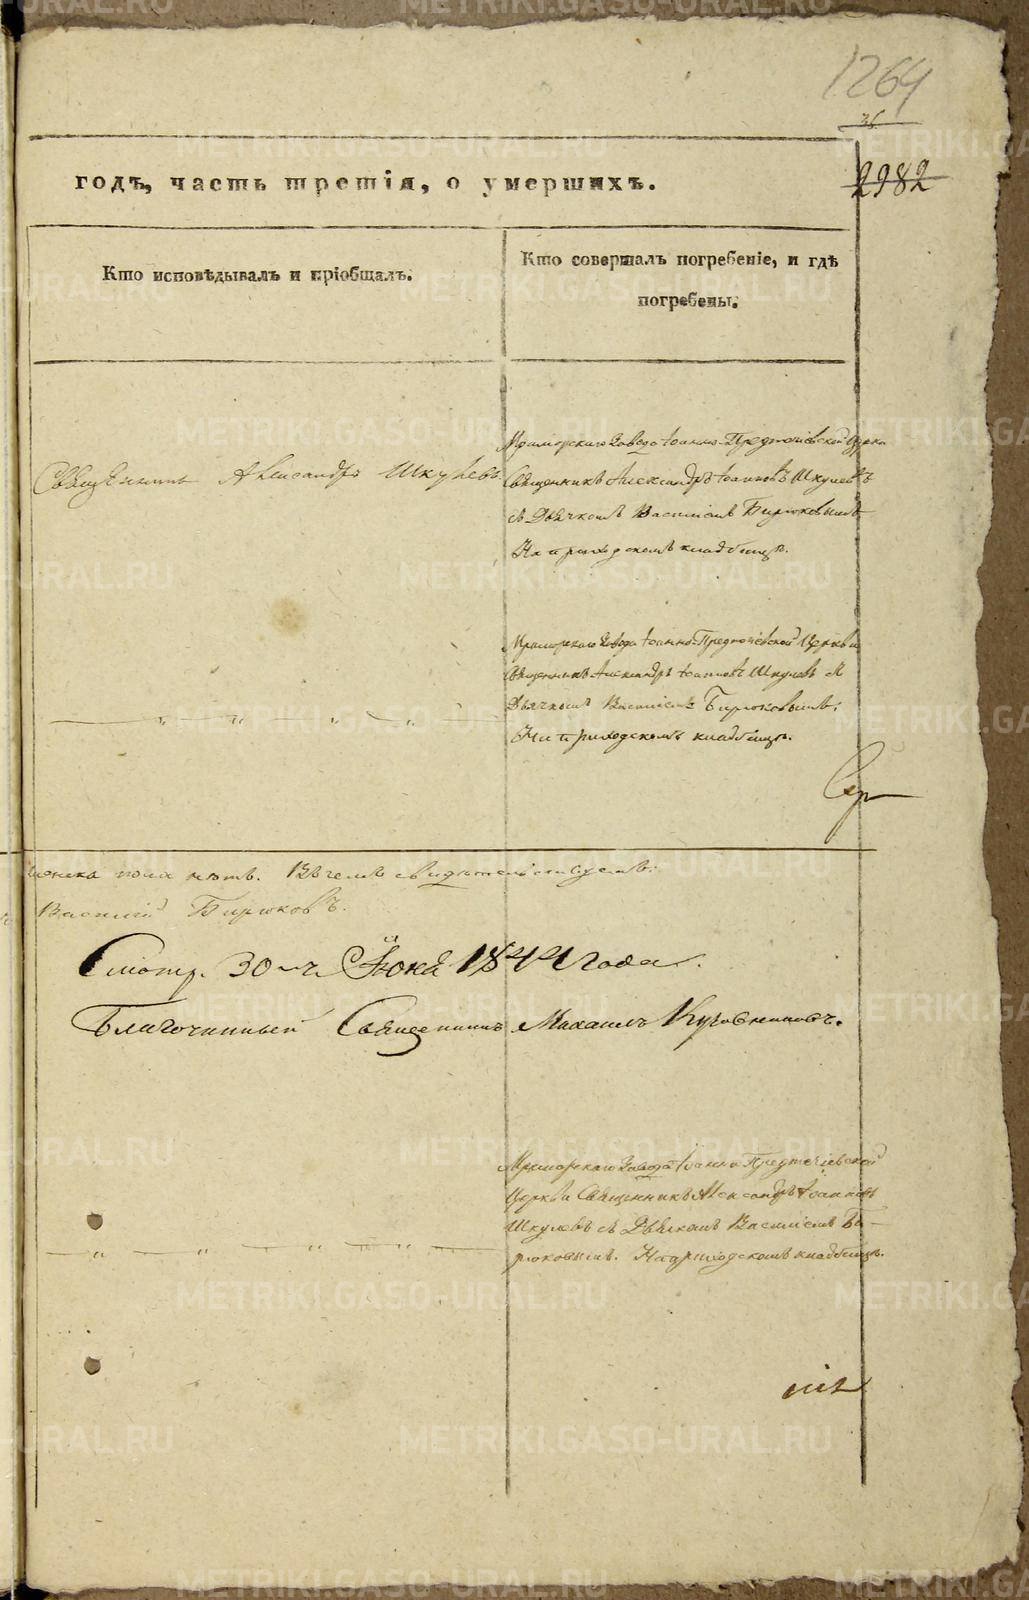 1264
36.
2982
годъ, часть третія, о умершихъ.
Кто исповѣдывалъ и пріобщалъ.
Кто совершалъ погребеніе, и гдѣ
погребены.
Мраморскаго Завода Іоанно-Предтечіевской Церкви
Священникъ Александръ Шкулевъ.
Священникъ Александръ Іоанновъ Шкулевъ
съ Дьячкомъ Василіемъ Бирюковымъ
На приходскомъ кладбищѣ.
Мраморскаго Завода Іоанно-Предтечіевской Церкви
Священникъ Александръ Іоанновъ Шкулевъ
Дьячкомъ Василіемъ Бирюковымъ;
На приходскомъ кладбищѣ.
женска пола нѣтъ. Въ чемъ свидѣтельствуемъ:
Василій Бирюковъ.
Смотр. 30 1844 года.
Благочинный Священникъ Михаилъ
Мраморскаго Завода Іоанно Предтечіевской
Церкви Священникъ Александръ Іоанновъ
Шкулевъ съ Дьячкомъ Василіемъ Би-
рюковымъ. На приходскомъ кладбищѣ.
METRIKI.GASO-URAL.RU